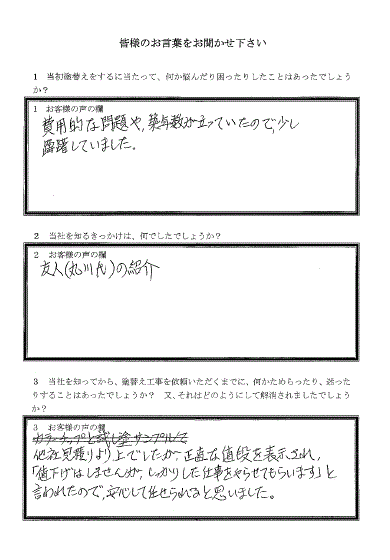 皆様のお言葉をお聞かせ下さい
1 当初塗替えをするに当たって、何か悩んだり困ったりしたことはあったでしょう
か？
1 お客様の声の欄
費用的な問題や、築年数が立っていたので、少し
躊躇していました。
2 当社を知るきっかけは、何でしたでしょうか？
2 お客様の声の欄
友人(丸川氏)の紹介
3 当社を知ってから、塗替え工事を依頼いただくまでに、何かためらったり、迷った
りすることはあったでしょうか？ 又、それはどのようにして解消されましたでしょう
か？
3 お客様の声の欄
カラーチップと試し塗サンプルして
他社見積りより上でしたが、正直な値段を表示され、
「値下げはしませんが、しっかりした仕事をやらせてもらいます」と
言われたので、安心して任せられると思いました。